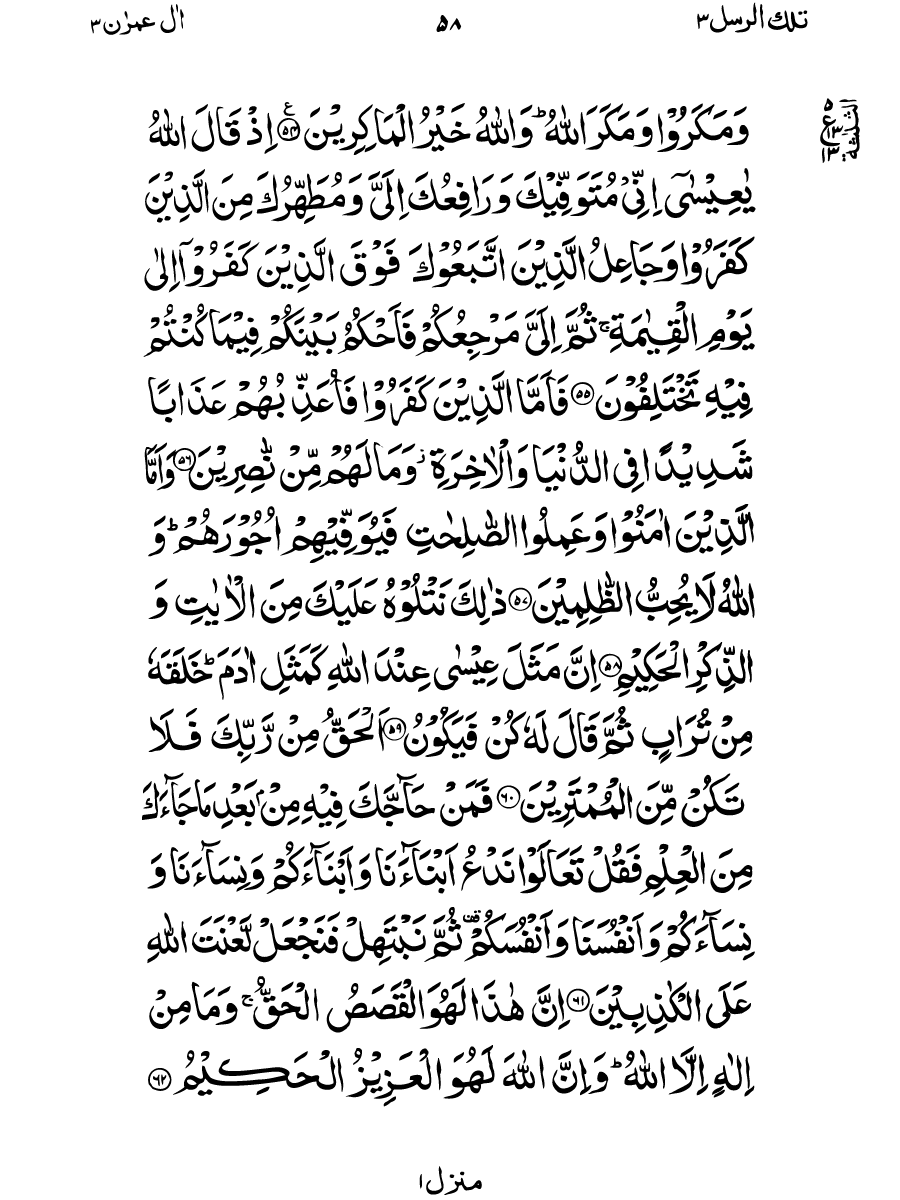 تلك الرسل ٣
٥٨
اٰل عمرٰن ٣
الثلثة
٥ ع ١٣ ١٣
وَمَكَرُوْا وَمَكَرَ اللّٰهُ ؕ وَاللّٰهُ خَيْرُ الْمَاكِرِيْنَ ﴿۵۴﴾ اِذْ قَالَ اللّٰهُ
يٰعِيْسٰۤى اِنِّىْ مُتَوَفِّيْكَ وَرَافِعُكَ اِلَىَّ وَمُطَهِّرُكَ مِنَ الَّذِيْنَ
كَفَرُوْا وَجَاعِلُ الَّذِيْنَ اتَّبَعُوْكَ فَوْقَ الَّذِيْنَ كَفَرُوْۤا اِلٰى
يَوْمِ الْقِيٰمَةِ ۚ ثُمَّ اِلَىَّ مَرْجِعُكُمْ فَاَحْكُمُ بَيْنَكُمْ فِيْمَا كُنْتُمْ
فِيْهِ تَخْتَلِفُوْنَ ﴿۵۵﴾ فَاَمَّا الَّذِيْنَ كَفَرُوْا فَاُعَذِّبُهُمْ عَذَابًا
شَدِيْدًا فِى الدُّنْيَا وَالْاٰخِرَةِ ؗ وَمَا لَهُمْ مِّنْ نّٰصِرِيْنَ ﴿۵۶﴾ وَاَمَّا
الَّذِيْنَ اٰمَنُوْا وَعَمِلُوا الصّٰلِحٰتِ فَيُوَفِّيْهِمْ اُجُوْرَهُمْ ؕ وَ
اللّٰهُ لَا يُحِبُّ الظّٰلِمِيْنَ ﴿۵۷﴾ ذٰلِكَ نَتْلُوْهُ عَلَيْكَ مِنَ الْاٰيٰتِ وَ
الذِّكْرِ الْحَكِيْمِ ﴿۵۸﴾ اِنَّ مَثَلَ عِيْسٰى عِنْدَ اللّٰهِ كَمَثَلِ اٰدَمَ ؕ خَلَقَهٗ
مِنْ تُرَابٍ ثُمَّ قَالَ لَهٗ كُنْ فَيَكُوْنُ ﴿۵۹﴾ اَلْحَقُّ مِنْ رَّبِّكَ فَلَا
تَكُنْ مِّنَ الْمُمْتَرِيْنَ ﴿۶۰﴾ فَمَنْ حَآجَّكَ فِيْهِ مِنْۢ بَعْدِ مَا جَآءَكَ
مِنَ الْعِلْمِ فَقُلْ تَعَالَوْا نَدْعُ اَبْنَآءَنَا وَاَبْنَآءَكُمْ وَنِسَآءَنَا وَ
نِسَآءَكُمْ وَاَنْفُسَنَا وَاَنْفُسَكُمْ ࣞ ثُمَّ نَبْتَهِلْ فَنَجْعَلْ لَّعْنَتَ اللّٰهِ
عَلَى الْكٰذِبِيْنَ ﴿۶۱﴾ اِنَّ هٰذَا لَهُوَ الْقَصَصُ الْحَقُّ ۚ وَمَا مِنْ
اِلٰهٍ اِلَّا اللّٰهُ ؕ وَاِنَّ اللّٰهَ لَهُوَ الْعَزِيْزُ الْحَكِيْمُ ﴿۶۲﴾
منزل ١